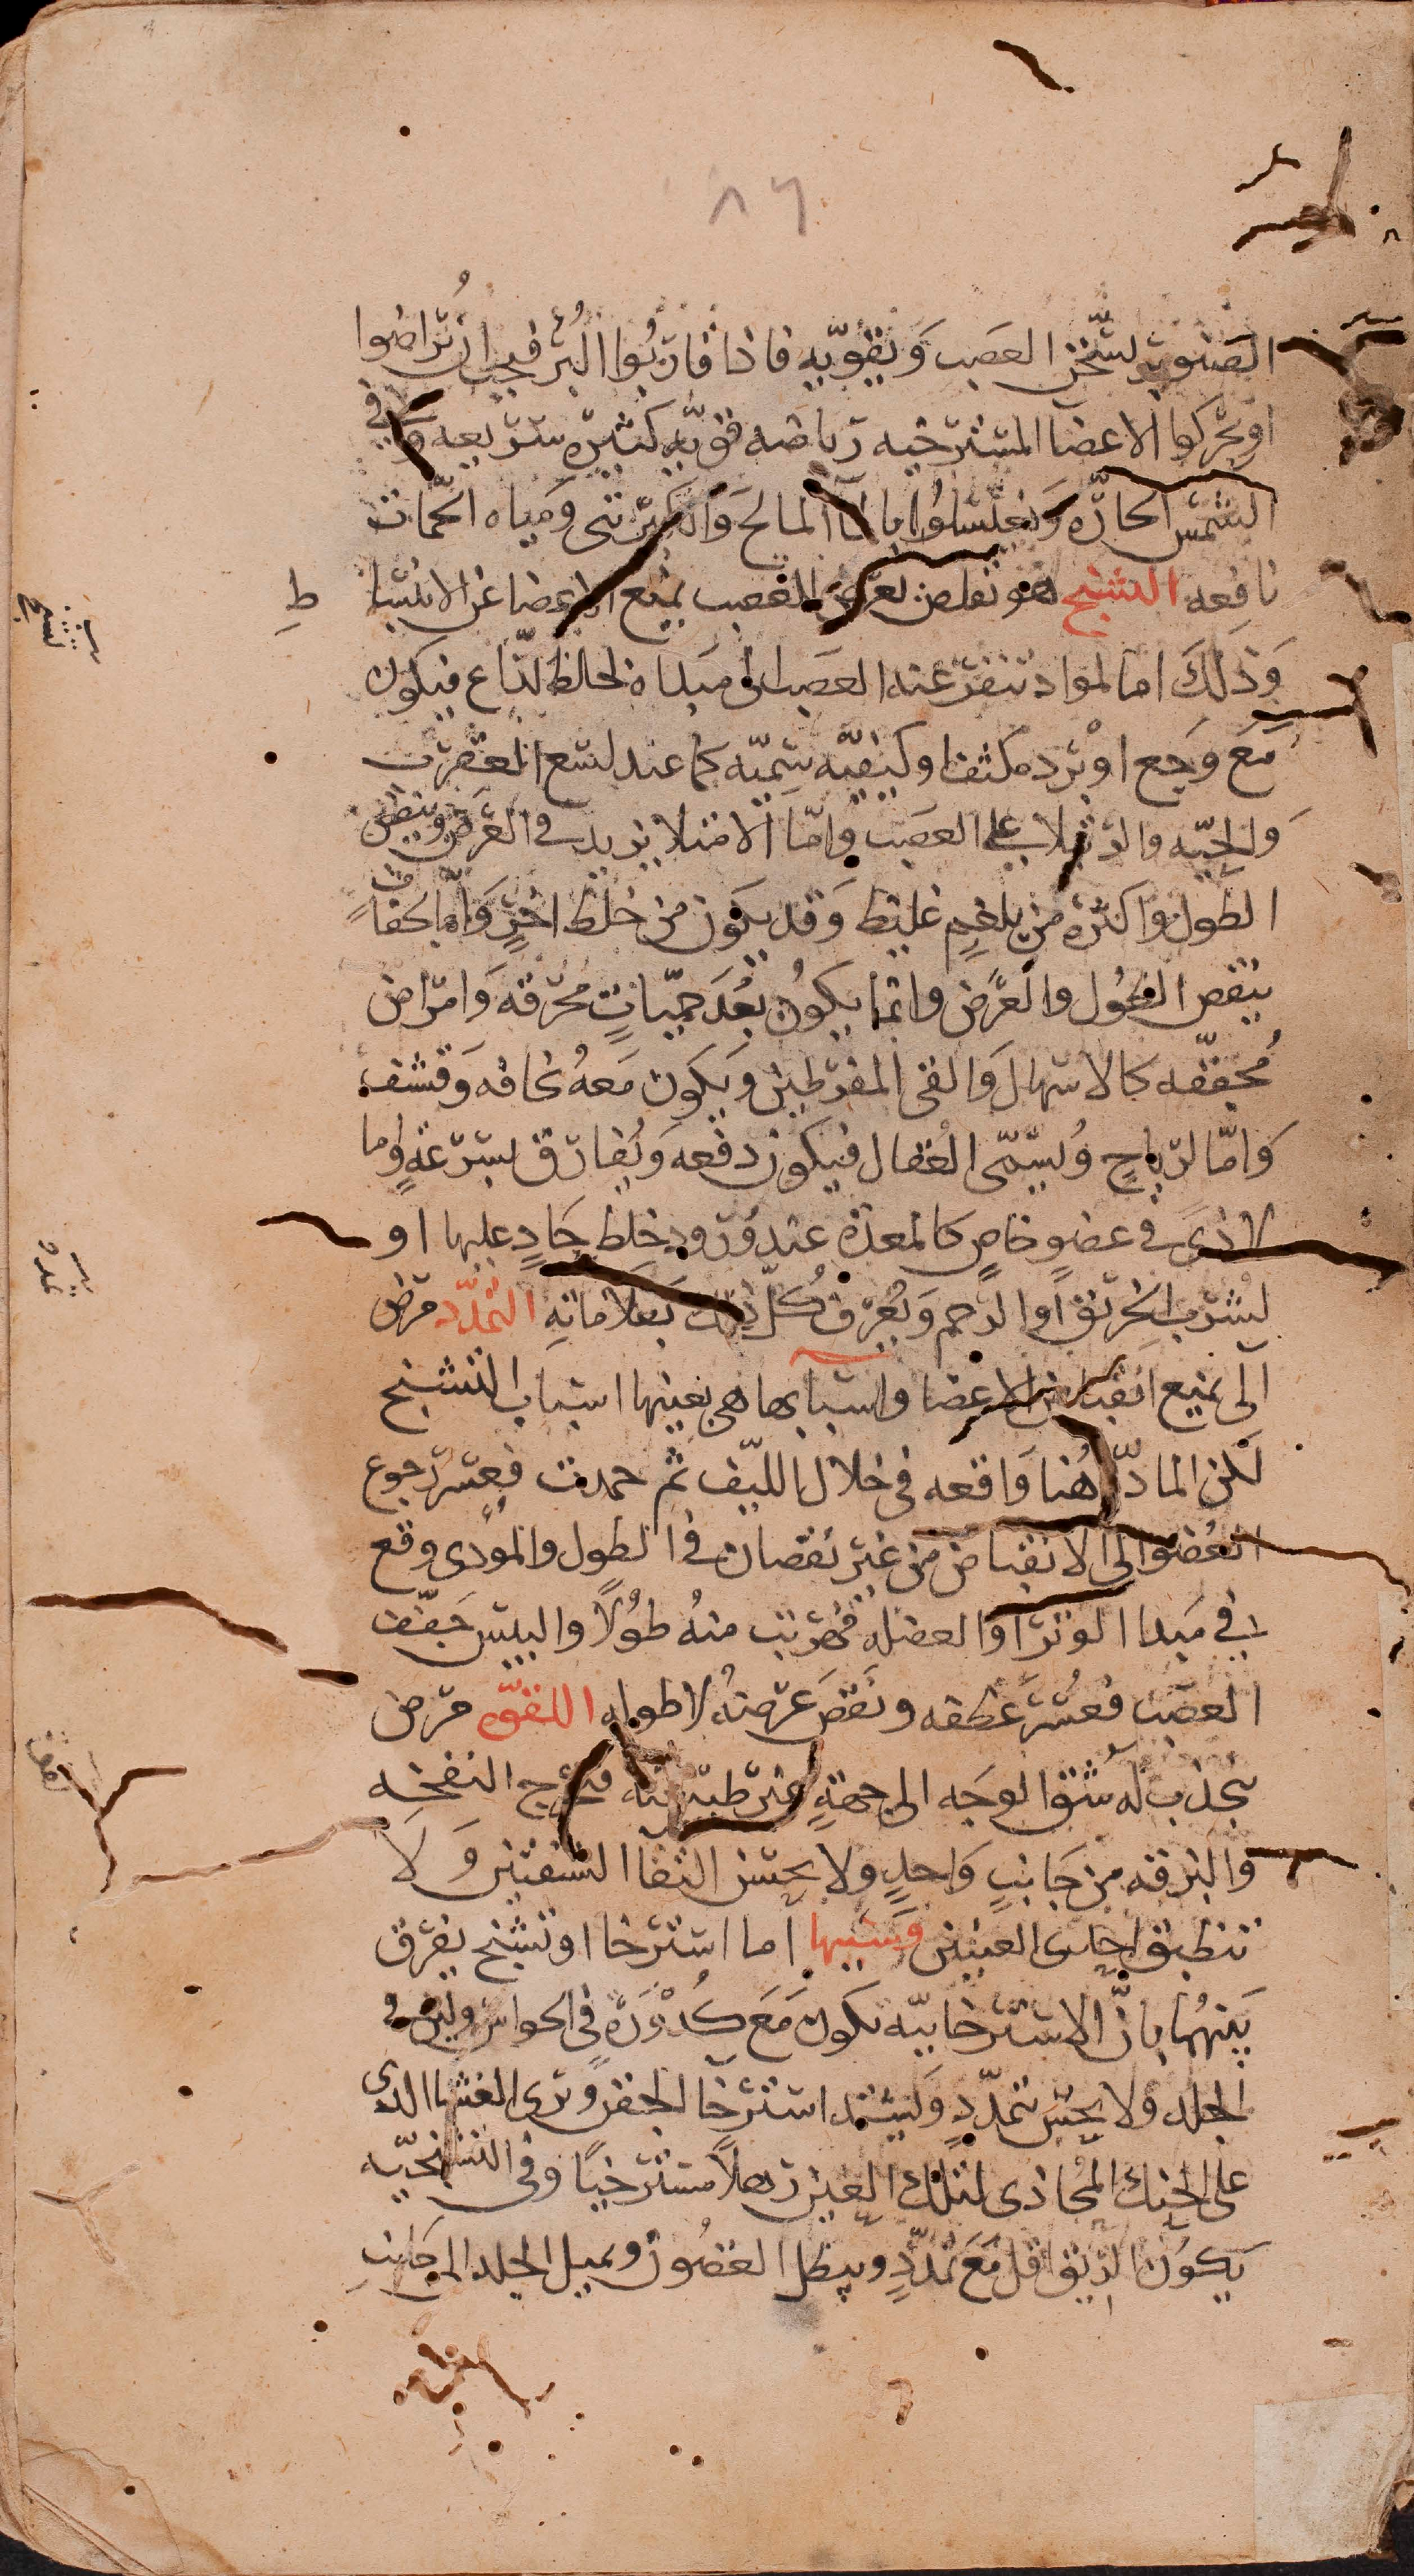 ٨٦
الصنوبر لتسخن العصب وَيقويه فاذا قاربُوا البُرْ فيجب ان يُراضوا
او يحركوا الاعضا المسترخيه رياضه قويّه كثيره سريعه وَ في
الشمس الحارّه وَيغتسلوُا بالمآ المالح وَالكبريتى ومَياه الحمّات
نافعه التشنج هو تقلص يعرض للعصب يمنع الاعضا عن الانبسا ط
وَذلك اما لمواد تنفر عنه العصب الى مبداه لخلط لذّاع فيكون
مَع وَجع او بْرد مكثف او كيفيّه سمّيّه كما عند لسع العقرب
وَالحيّه والرتيلا على العصب وامّا لامتلا يزيد في العَرض وينقص
الطول واكثره من بلغمٍ غليظ وَقد يكون من خلط اخر وَامّا لجفاف
ينقص الطول والعَرض وانما يكونُ بعدَ حميّاتٍ مُحرقه وَامراض
مُجففّه كالاسهال وَالقى المفرطين ويكون مَعهُ نحافه وَقشف
وَامّا لرياحٍ وُيسمّى العُقال فيكون دفعه وَيُفارق بسرعةٍ واما
لاذىً في عضوٍ خاصٍ كالمعدة عند وُرود خلط حَادٍ عليها او
لشرب الخربق او الرحم وَيُعرف كُل ذلك بَعلاماتهِ التمدّد مرض
آلى يمنع انقباض الاعضا واسبابها هى بعينها اسباب التشنج
لكن المادّه هُنا وَاقعه في خلال الليّف ثم جمدت فعسر رجوع
العُضو الى الانقباض من غير نقصان في الطول والموُذى وقع
في مَبدا الوتر او العضله فهربت منهُ طوُلاً واليبس جَفّف
العصَب فعسُر عَطفه ونَقصَ عرضهُ لا طوله اللقوّه مرض
ينجذب لهُ شق الوجَه الى جهةٍ غير طبيعيّه فتخرج النفخه
والبزقه من جَانبٍ وَاحدٍ ولا يحسن التقا الشفتين وَ لا
تنطبق احدى العينين وسَببها اما استرخا او تشنج يفرق
بَينهُما بانّ الاسترخائيّه تكون مَع كُدُورَةٍ في الحواس ولين في
الجلد ولا يحس بتمدّدٍ وَيشتد استرخا الجفن وَترى الغشا الذى
على الحنك المحُاذى لتلك العين رهلاً مسترخياً وفى التشنجيّه
يكون الريق اقل مَعَ تمدّدٍ ويبطل الغضُون ويميل الجلد الى جَانب
تشنج
تمدد
لقوه